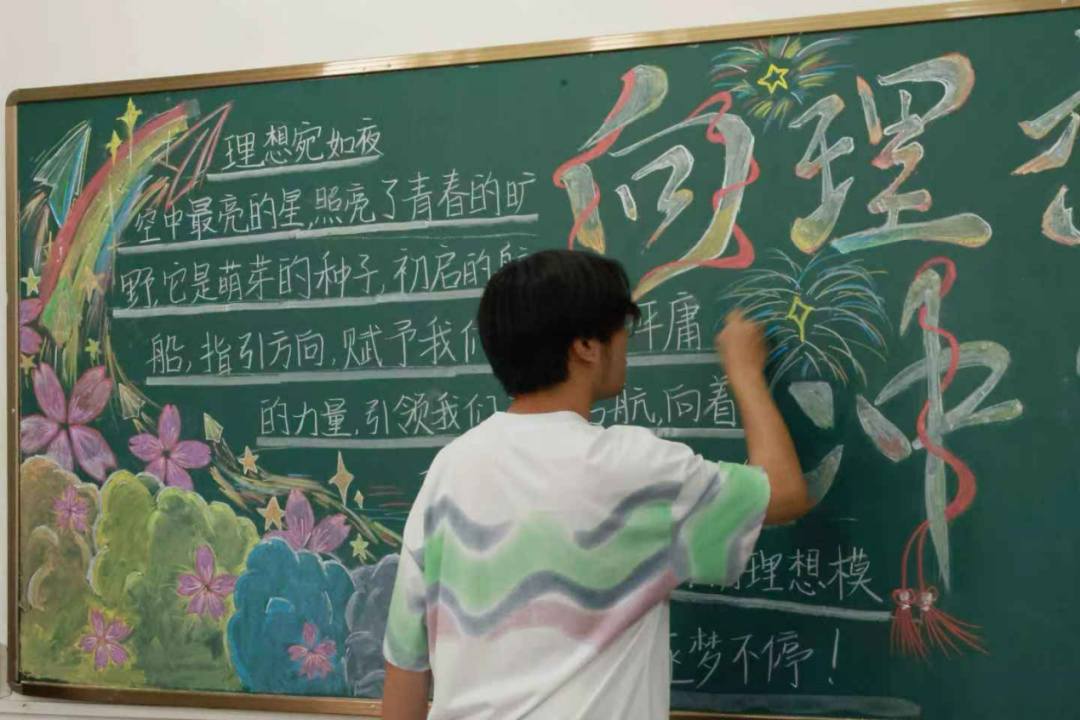 向理
冲
理想宛如夜
空中最亮的星,照亮了青春的旷
野,它是萌芽的种子,初启的航
船,指引方向,赋予我们平庸
的力量,引领我们航,向着
理想模
逐梦不停!